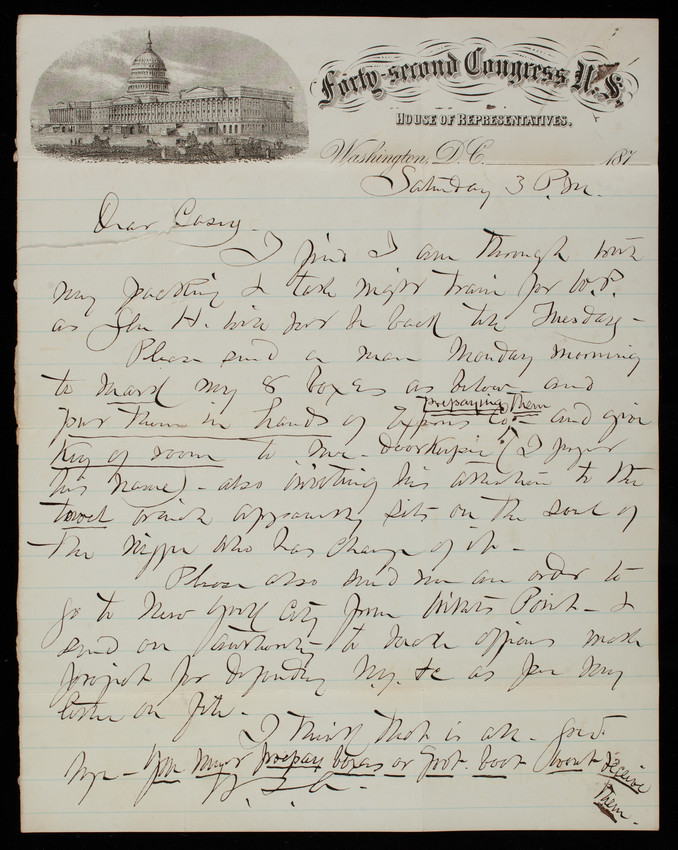 Forty-second Congress U.S.
HOUSE OF REPRESENTATIVES.
Washington, D.C. 187
Saturday 3 P.M.
Dear Casey -
I find I am through with
my packing & take night train for W.P.
as Gen H. will not be back till Tuesday -
Please send a man Monday morning
to mark my 8 boxes as below and
prepaying them
put them in hands of Express Co - and give
key of room to Mr. Doorkeeper (I forget
his name) - also inviting his attention to the
towel which apparently sits on the soul of
the nigger who has charge of it -
Please also send me an order to
go to New York City from Willets Point - &
send on authority to make officers make
project for defending N.Y. &c as per my
letter on file -
I think that is all - good
bye - You must prepay boxes or Govt. boat wont receive
them -
H. L. A.